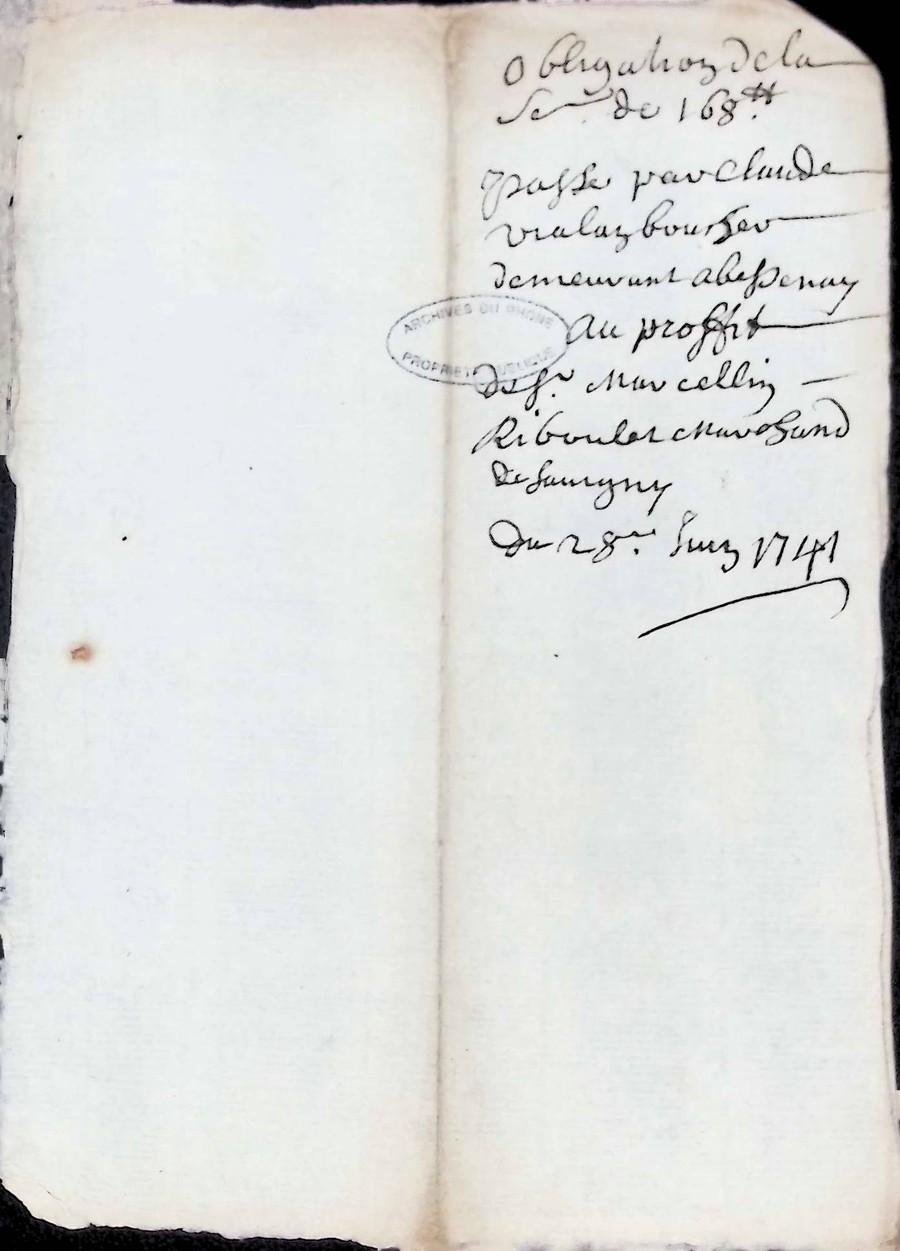 obligation de la
Se.e de 168 ₶
passe par Claude
vialay boucher
demeurant a bessenay
ARCHIVES DU RHONE
PROPRIETE PUBLIQUE
au proffit
de Sr. Marcellin
Riboulet Marchand
de Savigny
Du 28e. Juin 1741